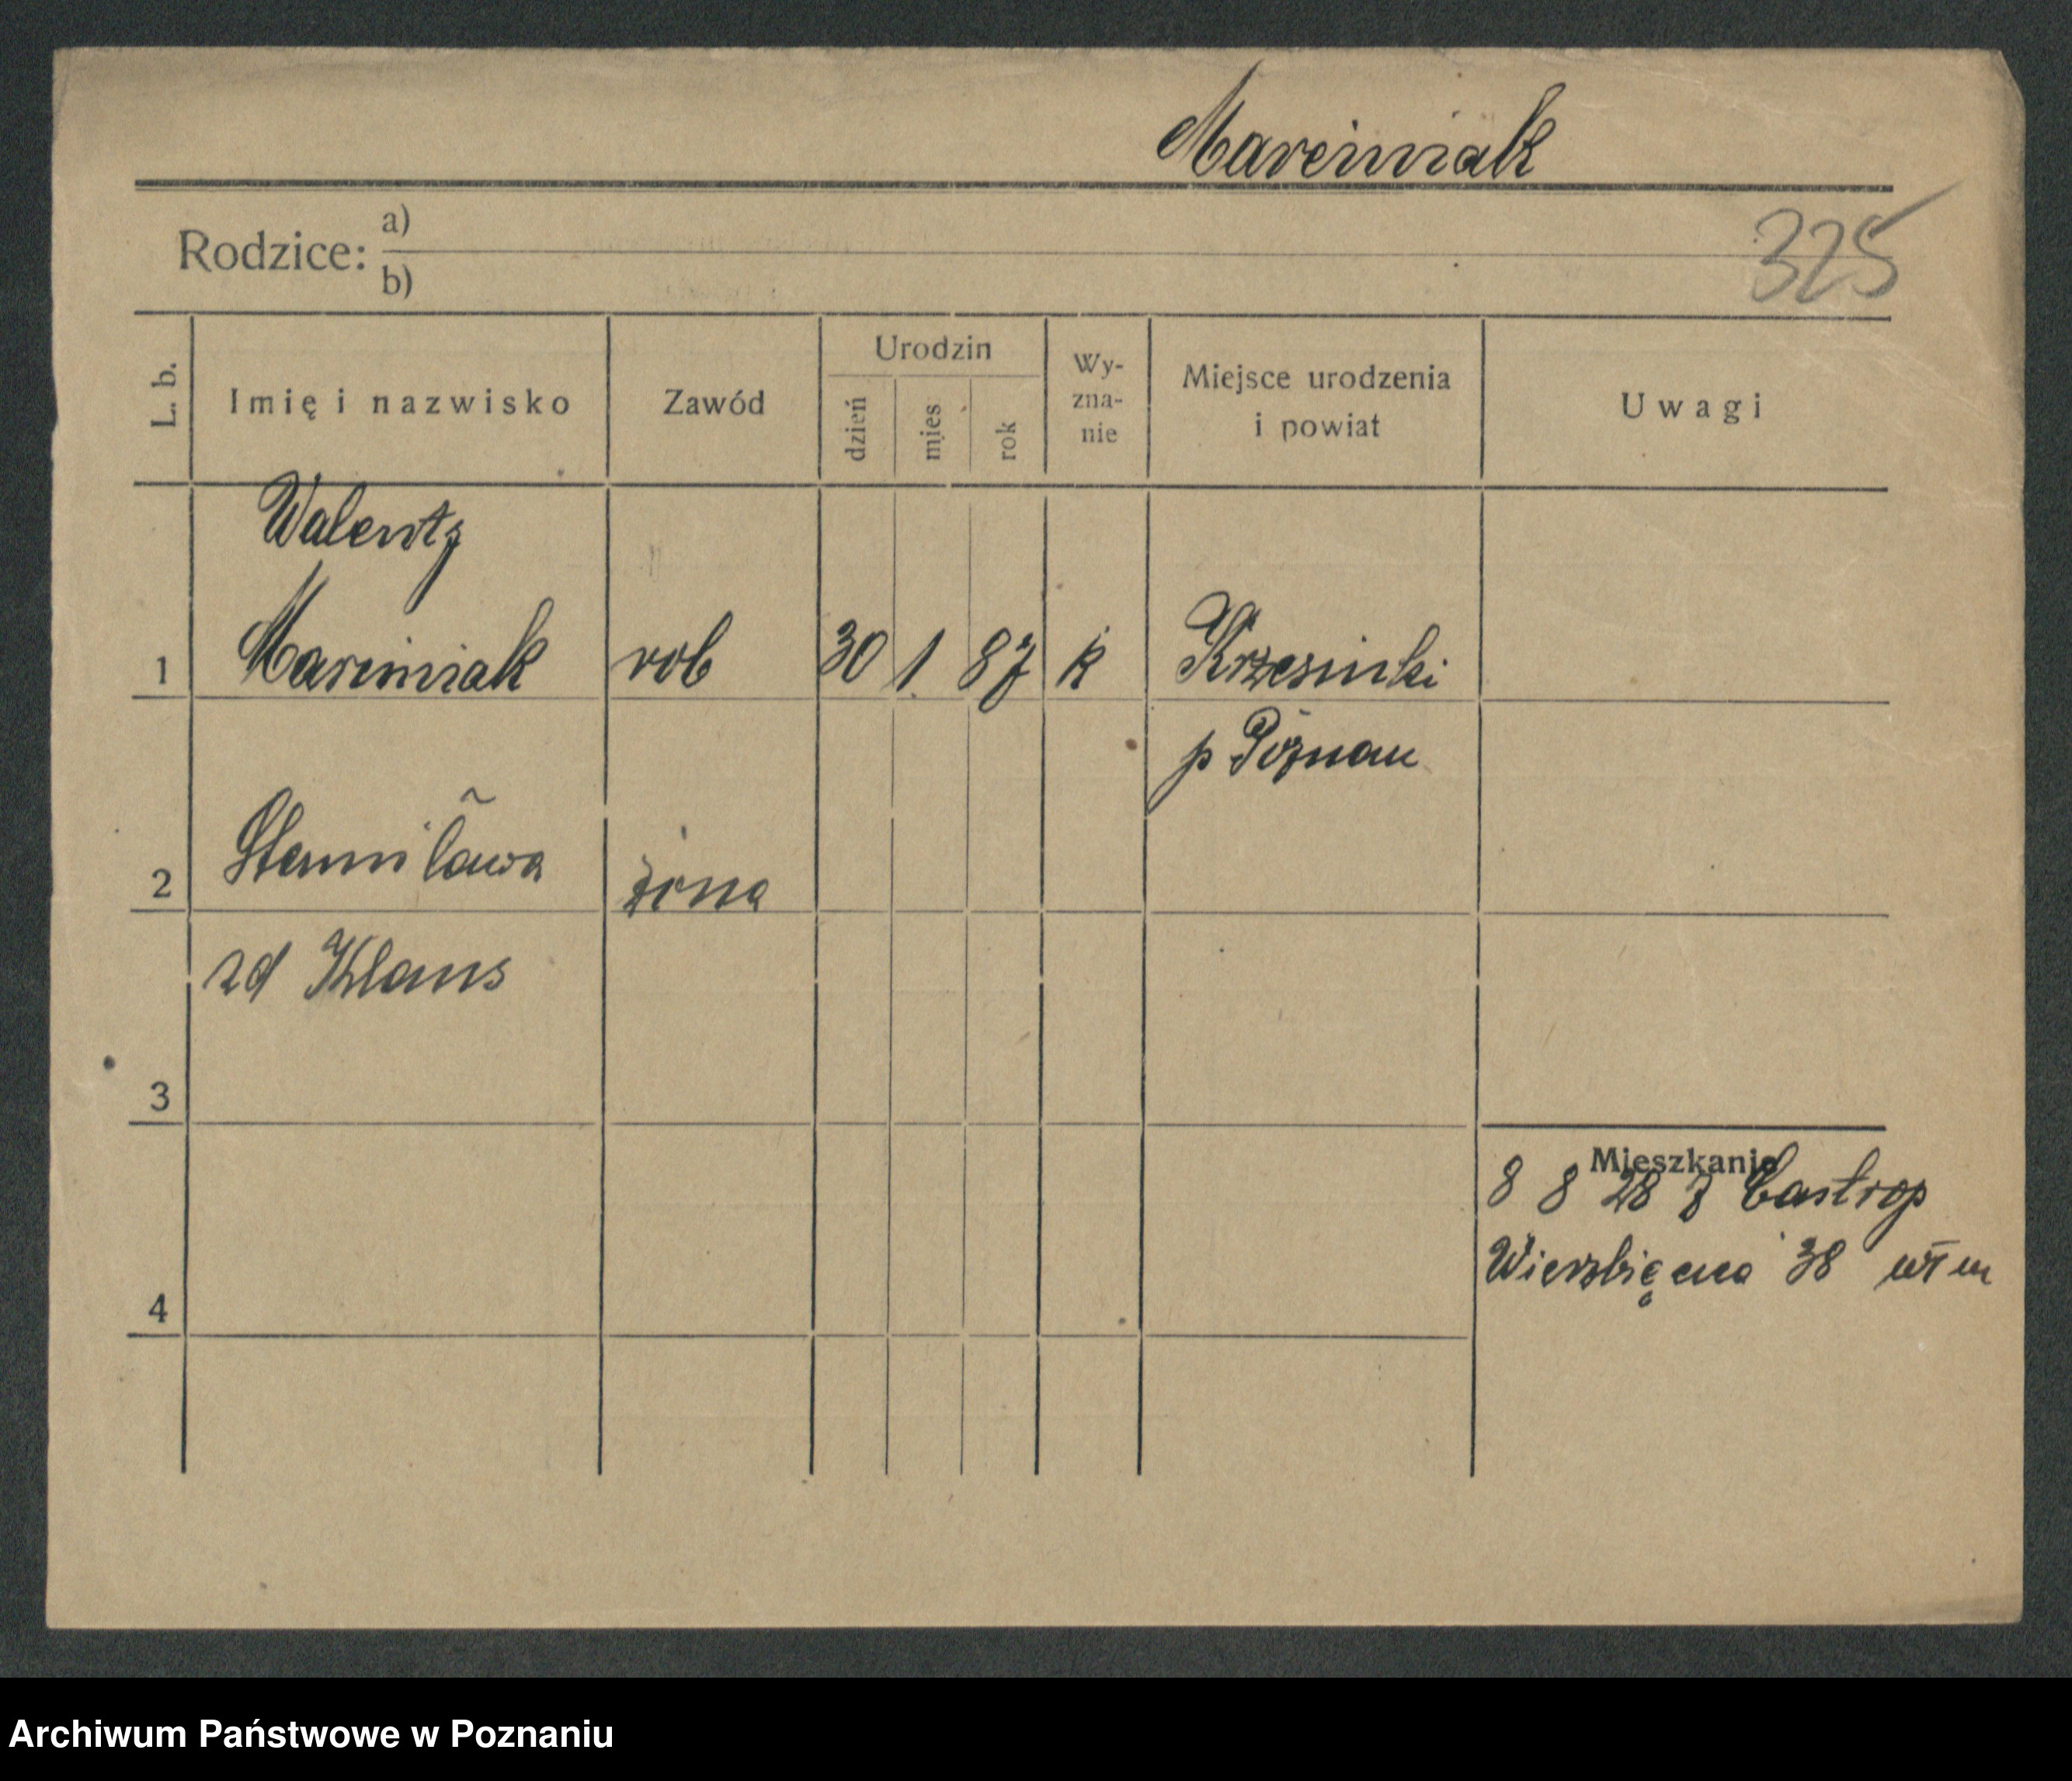 Marciniak
325
Rodzice: a)
b)
L. b.
Imię i nazwisko
Zawód
Urodzin
dzień
mies
rok
Wy-
zna-
nie
Miejsce urodzenia
i powiat
Uwagi
Walenty
1 Marciniak rob 30 1 87 k Krzesinki
p Poznań
2 Stanisława żona
zd Klaus
3
Mieszkanie
8 8 28 z Castrop
Wierzbięcice 38
4
Archiwum Państwowe w Poznaniu